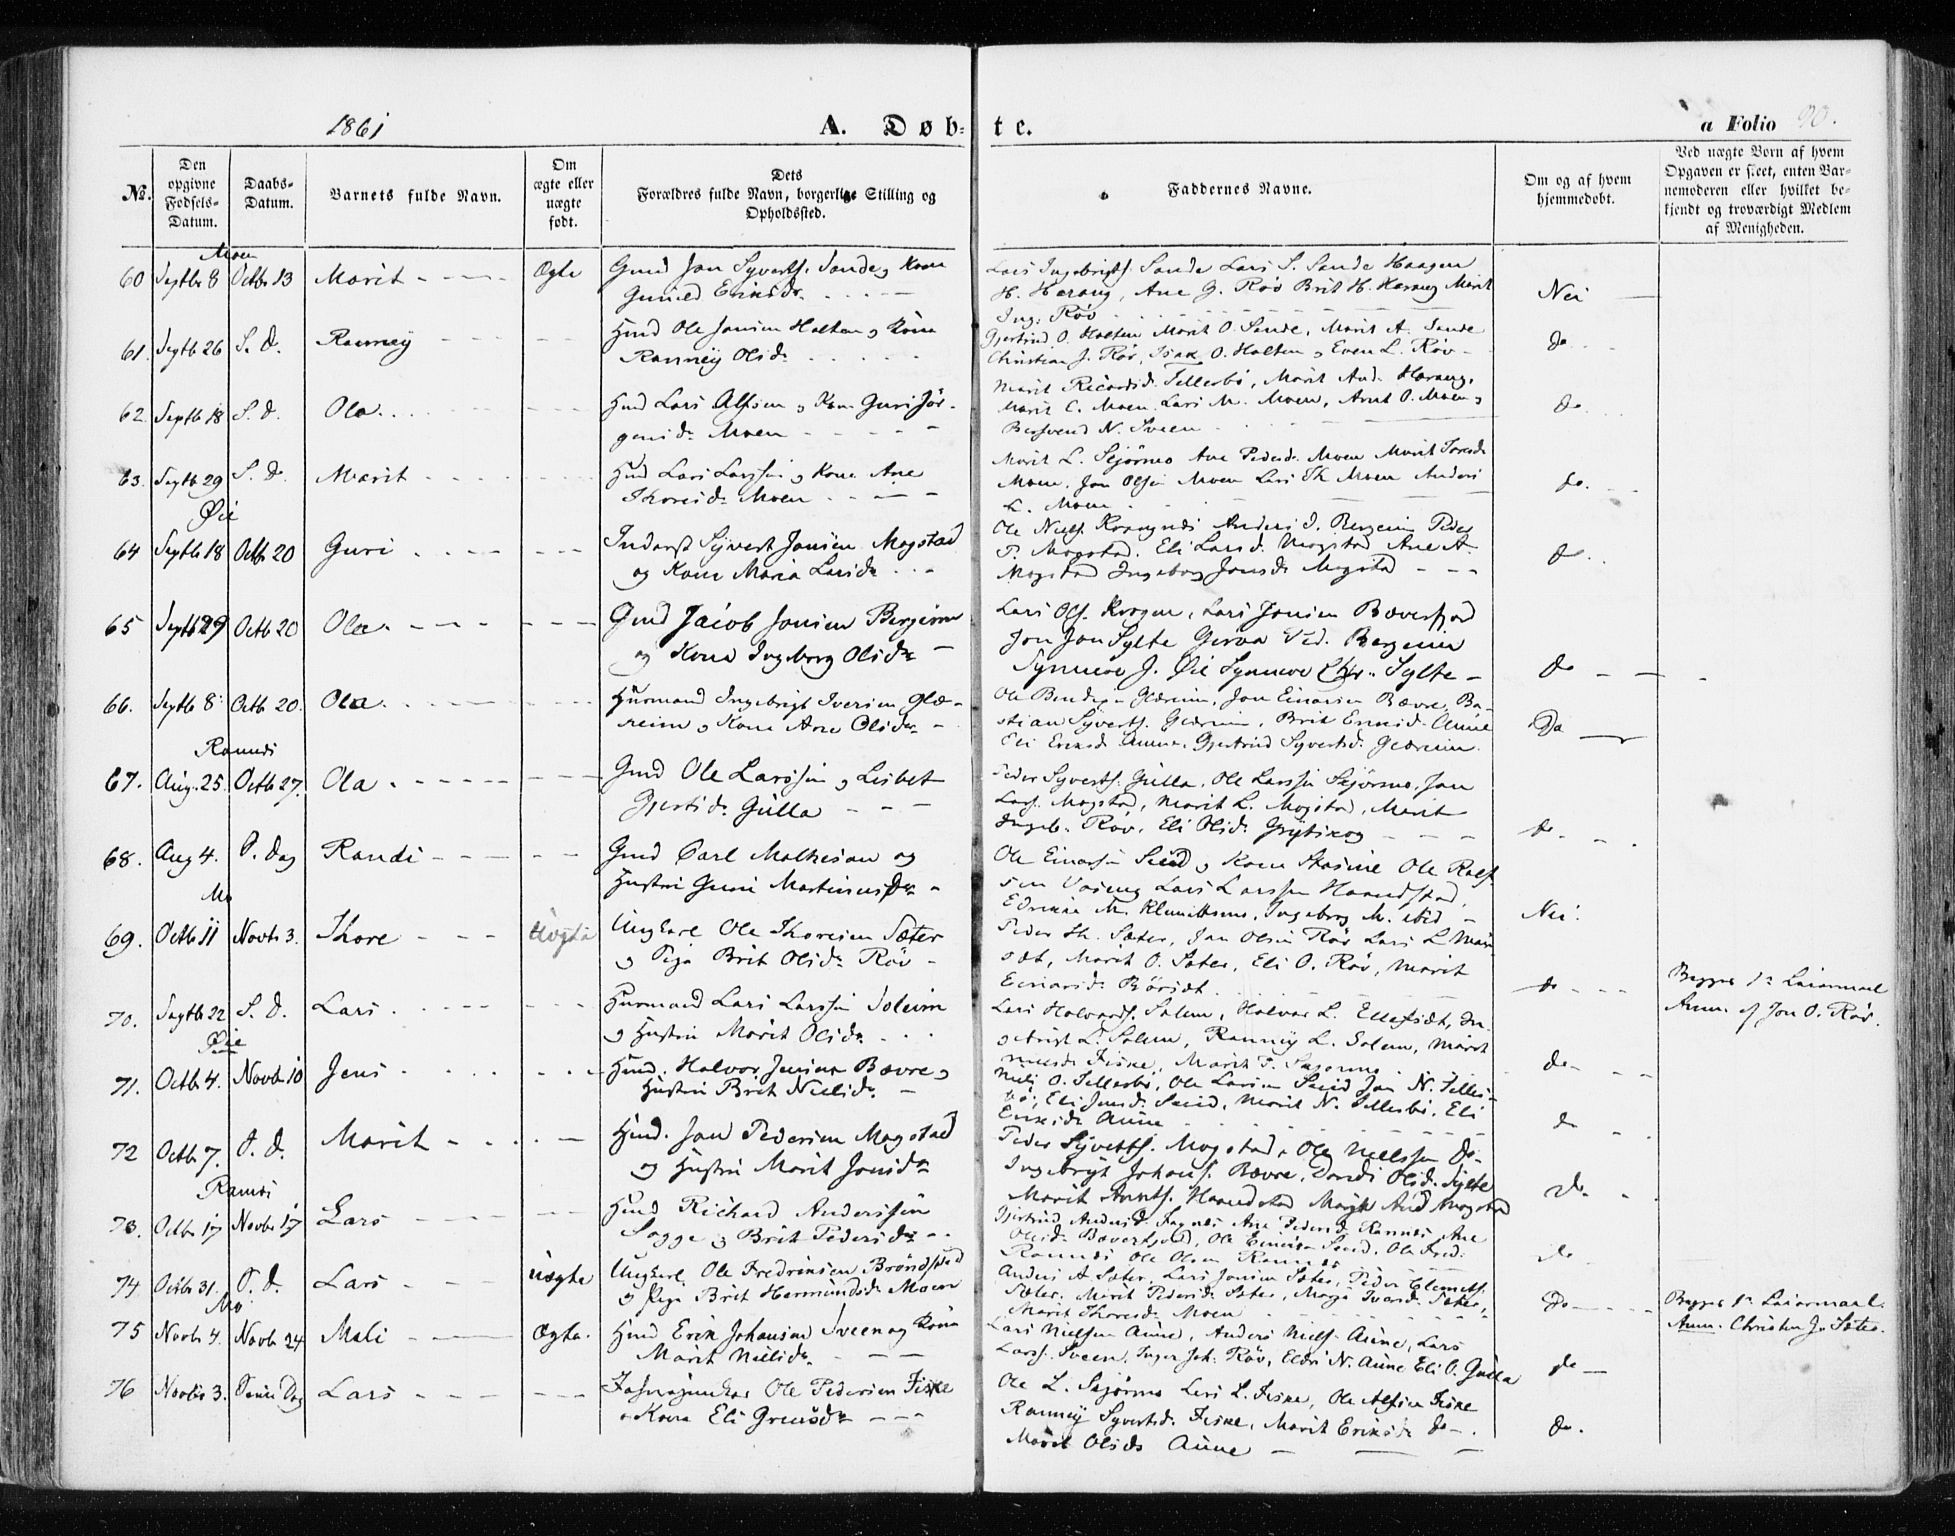 1861
A. Døb-
te.
a Folio 90.
No.
Den opgivne Fødsels-Datum.
Daabs-Datum.
Barnets fulde Navn.
Om ægte eller uægte født.
Dets Forældres fulde Navn, borgerlige Stilling og Opholdssted.
Faddernes Navne.
Om og af hvem hjemmedøbt.
Ved uægte Børn af hvem Opgaven er skeet, enten Barnemoderen eller hvilket bekjendt og troværdigt Medlem af Menigheden.
Moen
60 Septb 8 Octb 13 Marit Ægte Gmd Jon Syverts. Sande og Kone
Gunild Eriksdr.
Lars Ingebrigts. Sande Lars S. Sande Haagen
H. Harang, Ane G. Røv Brit H. Harang Marit
Ing. Røv
Nei
61. Septb 26 S. D. Ranney Hmd Ole Jonsen Holten og Kone
Ranney Olsdr
Gjertrud O. Holten Marit O. Sande, Marit A. Sande
Christian J. Røv, Isak O. Holten og Even L. Røv
do
62. Septb 18 S. d. Ola Hmd Lars Alfsen og Kone Guri Jør-
gensdr Moen
Marit Ricardsd. Tellesbø, Marit And. Harang,
Marit C. Moen Lars M. Moen, Arnt O. Moen og
Bersvend N. Sveen
do
63. Septb 29 S. D. Marit Hmd Lars Larssen og Kone Ane
Thoresdr Moen
Marit L. Skjørmo Ane Pedersd. Moen Marit Toresdr
Moen, Jon Olsen Moen Lars Th. Moen Anders
L. Moen
do.
Øie
64 Septb 18 Octb 20 Guri Inderst Syvert Jonsen Mogstad
og Kone Maria Larsdr
Ole Niels. Anders J. Bergeim Peder
P. Mogstad. Eli Larsd. Mogstad Ane A.
Mogstad Ingeborg Jonsdr Mogstad
do.
65 Septb 29 Octb 20 Ola Gmd Jacob Jonsen Bergeim
og Kone Ingeborg Olsdr
Lars Ols. Krogen, Lars Jonsen Bæverfjord
Jon Jon Sylte Bergeim
Synnøve J. Øie Synnøve Chr. Sylte
do
66. Septb 8 Octb 20. Ola Huusmand Ingebrigt Iversen Glæ-
reim og Kone Ane Olsdr
Ole Glæreim, Jon Einarsen Bævre, Ba-
stian Syverts. Glæreim, Brit Eriksd. Aune
Eli Eriksd Aune, Gjertrud Syvertsd. Glæreim.
Do
Ranæs
67. Aug. 25. Octb 27. Ola Gmd Ole Larssen og Lisbet
Gjertsdr Gulla
Peder Syverts. Gulla, Ole Larssen Skjørmo, Jon
Lars. Mogstad, Marit L. Mogstad, Marit
Ingeb. Røv, Eli Olsdr Grytskog
do
68. Aug 4. S. Dag Randi Gmd Carl Mathesan og
Hustru Guri Martinusdr
Ole Einarsen Sund og Kone Ole Rolf-
sen Lars Larssen Haandstad,
M. Ingeborg M. ibid
Nei.
Mo
69. Octb 11 Novb 3. Thore Uægte Ungkarl Ole Thoresen Sæter
og Pige Brit Olsdr Røv
Peder Th. Sæter, Jon Olsen Røv Lars L.
Marit O. Sæter, Eli O. Røv, Marit
Einarsdr Børsæt
do
Begges 1ste Leiermaal
Anm. af Jon O. Røv.
70. Septb 22 S. D. Lars Huusmand Lars Larssen Soleim
og Hustru Marit Olsdr
Lars Halvards. Solem, Halvar L. Ellefsæt, In-
gebrigt L. Solem, Ranney L. Solem, Marit
Fiske, Marit T. Skjørmo
do
Øie
71. Octb 4. Novb 10 Jens Hmd. Halvor Jensen Bævre og
Hustru Brit Nielsdr
Niels O. Tellesbø, Ole Larsen Sund Jon N. Telles-
bø, Eli Jonsdr Sund, Marit N. Tellesbø, Eli
Eriksdr Aune
do
72 Octb 7. S. d. Marit Hmd. Jon Pedersen Mogstad
og Hustru Marit Jonsdr
Peder Syverts. Mogstad, Ole Nielssen do
Ingebrigt Johans. Bævre, Dordi Olsd. Sylte
Marit Arnts. Haandstad Marit And Mogstad
do
Ranæs
73. Octb 17 Novb 17 Lars Hmd Richard Anderssen
Sogge og Brit Pedersdr
Gjertrud Andersd. Fagnes Ane Pedersd. Rannes Ane
Olsdr Bæverfjord, Ole Einarsen Sund, Ole Fred.
Rannes Ole Olsen Rannes
do
74 Octb 31. S. d. Lars uægte Ungkarl Ole Fredriksen Brøndstad
og Pige Brit Hermundsdr Moen
Anders A Sæter, Lars Jonsen Sæter, Peder Clemets.
Sæter, Marit Pedersdr Sæter, Marja Ivarsd. Sæter,
Marit Thoresdr Moen
Do
Begges 1ste Leiermaal.
Anm. Christen J. Sæter.
Mo
75 Novb 4. Novb 24 Mali Ægte. Hmd Erik Johansen Sveen og Kone
Marit Nielsdr
Lars Nielsen Aune, Anders Niels. Aune, Lars
Lars. Sveen, Inger Joh. Røv, Eldri N. Aune Eli O. Gulla
do
76 Novbr 3. Samme Dag Lars Ole Pedersen Fiske
Kone Eli
Ole L. Skjørmo Lars L. Fiske, Ole Alfsen Fiske
Ranney Syvertsd. Fiske, Marit Eriksdr do
Marit Olsdr Aune
do.